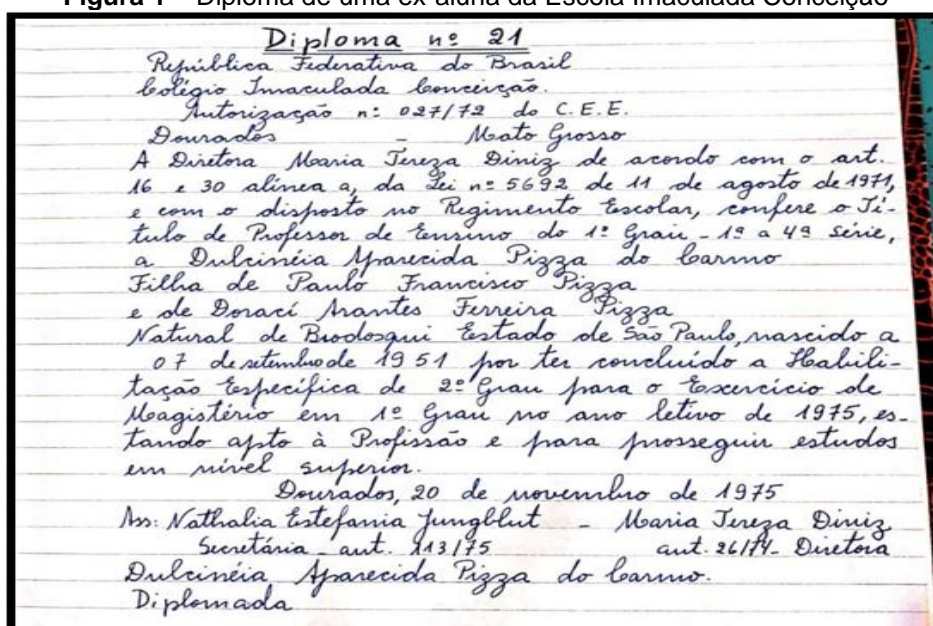 Figura 1 – Diploma de uma ex-aluna da Escola Imaculada Conceição
Diploma nº 21
República Federativa do Brasil
Colégio Imaculada Conceição.
Autorização nº 027/72 do C.E.E.
Dourados – Mato Grosso
A Diretora Maria Tereza Diniz de acordo com o art.
16 e 30 alínea a, da Lei nº 5692 de 11 de agosto de 1971,
e com o disposto no Regimento Escolar, confere o Tí-
tulo de Professor de Ensino do 1º Grau - 1ª a 4ª série,
a Dulcinéia Aparecida Pizza do Carmo
Filha de Paulo Francisco Pizza
e de Doraci Arantes Ferreira Pizza
Natural de Brodosqui Estado de São Paulo, nascido a
07 de setembro de 1951 por ter concluído a Habili-
tação Específica de 2º Grau para o Exercício de
Magistério em 1º Grau no ano letivo de 1975, es-
tando apto à Profissão e para prosseguir estudos
em nível superior.
Dourados, 20 de novembro de 1975
Ass: Nathalia Estefania Jungblut – Maria Tereza Diniz
Secretária - aut. 113/75 aut. 26/74 - Diretora
Dulcinéia Aparecida Pizza do Carmo.
Diplomada